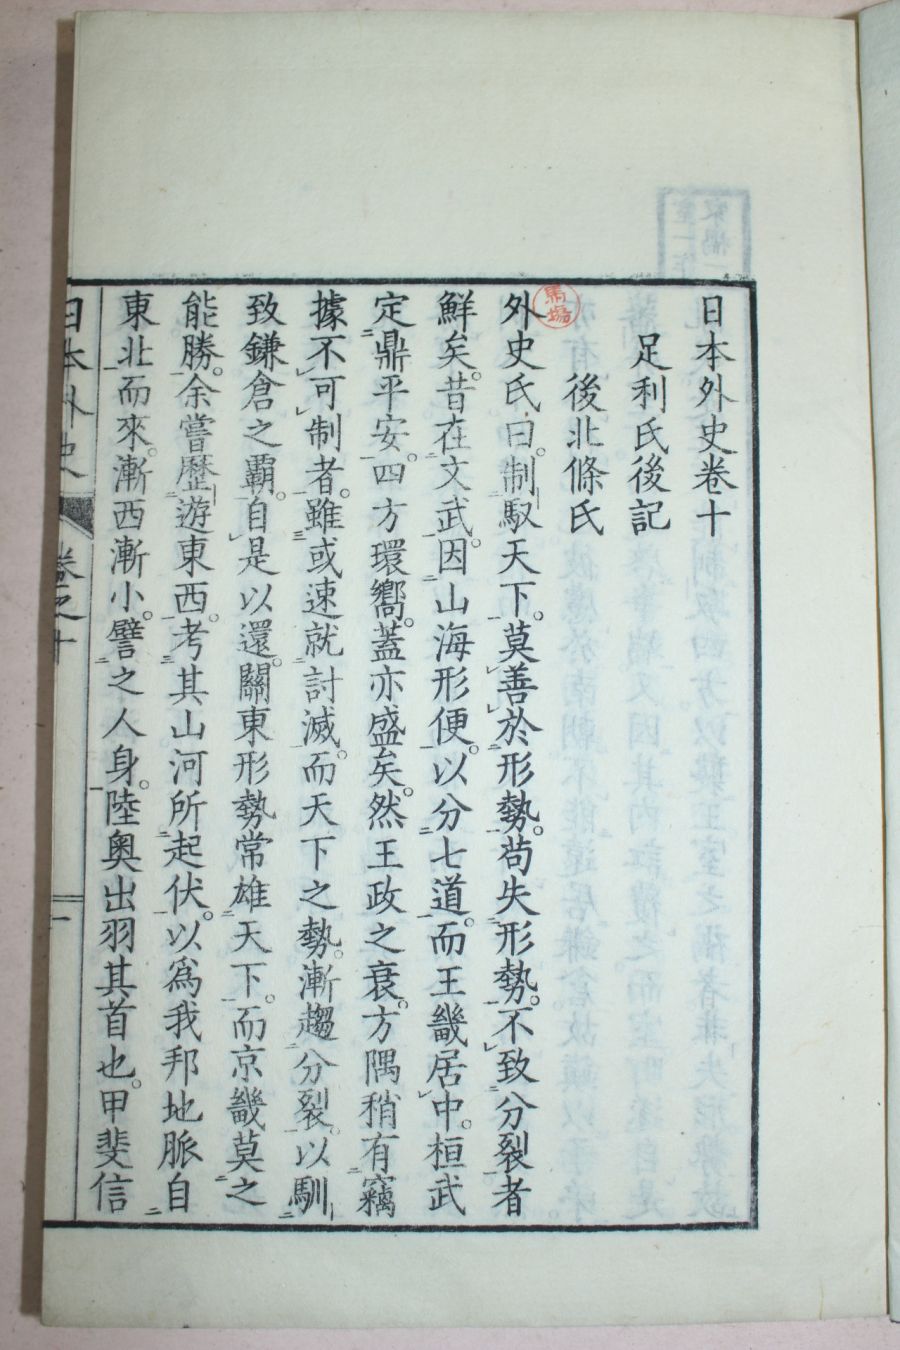 日本外史卷十
足利氏後記
後北條氏
外史氏曰。制馭天下。莫善於形勢。苟失形勢。不致分裂者
鮮矣。昔在文武。因山海形便。以分七道。而王畿居中。桓武
定鼎平安。四方環嚮。蓋亦盛矣。然王政之衰。方隅稍有竊
據不可制者。雖或速就討滅。而天下之勢。漸趨分裂。以馴
致鎌倉之霸。自是以還。關東形勢常雄天下。而京畿莫之
能勝。余嘗歷遊東西。考其山河所起伏。以爲我邦地脈自
東北而來。漸西漸小。譬之人身。陸奧出羽其首也。甲斐信
日本外史
卷之十
一
馬場